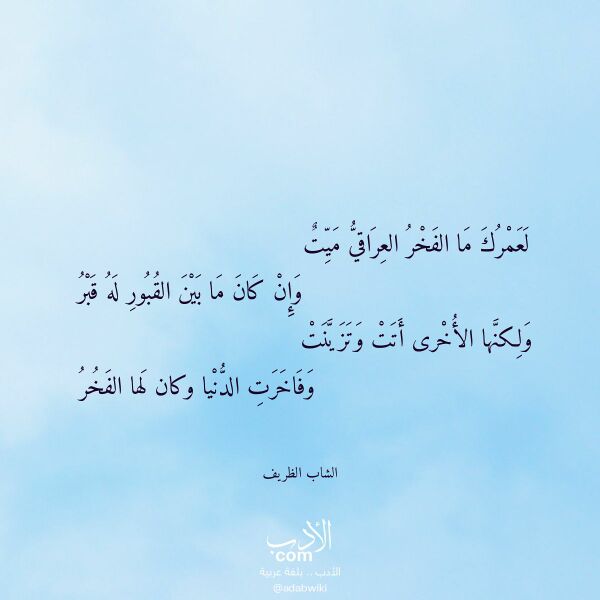 لَعَمْرُكَ مَا الفَخْرُ العِرَاقيُّ مَيِّتٌ
وَإِنْ كَانَ مَا بَيْنَ القُبُورِ لَهُ قَبْرُ
وَلِكنَّها الأُخْرى أَتَتْ وَتَزَيَّنَتْ
وَفَاخَرَتِ الدُّنْيا وكان لَها الفَخُرُ
الشاب الظريف
الأدب
.com
الأدب .. بلغة عربية
@adabwiki